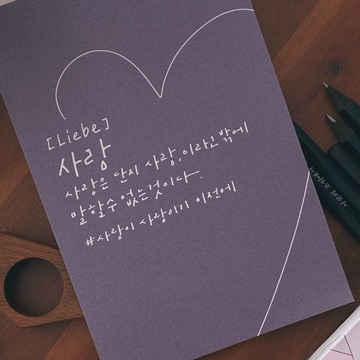 [Liebe]
사랑
사랑은 단지 사랑,이라고 밖에
말할수 없는것이다.
#사랑이 사랑이기 이전에